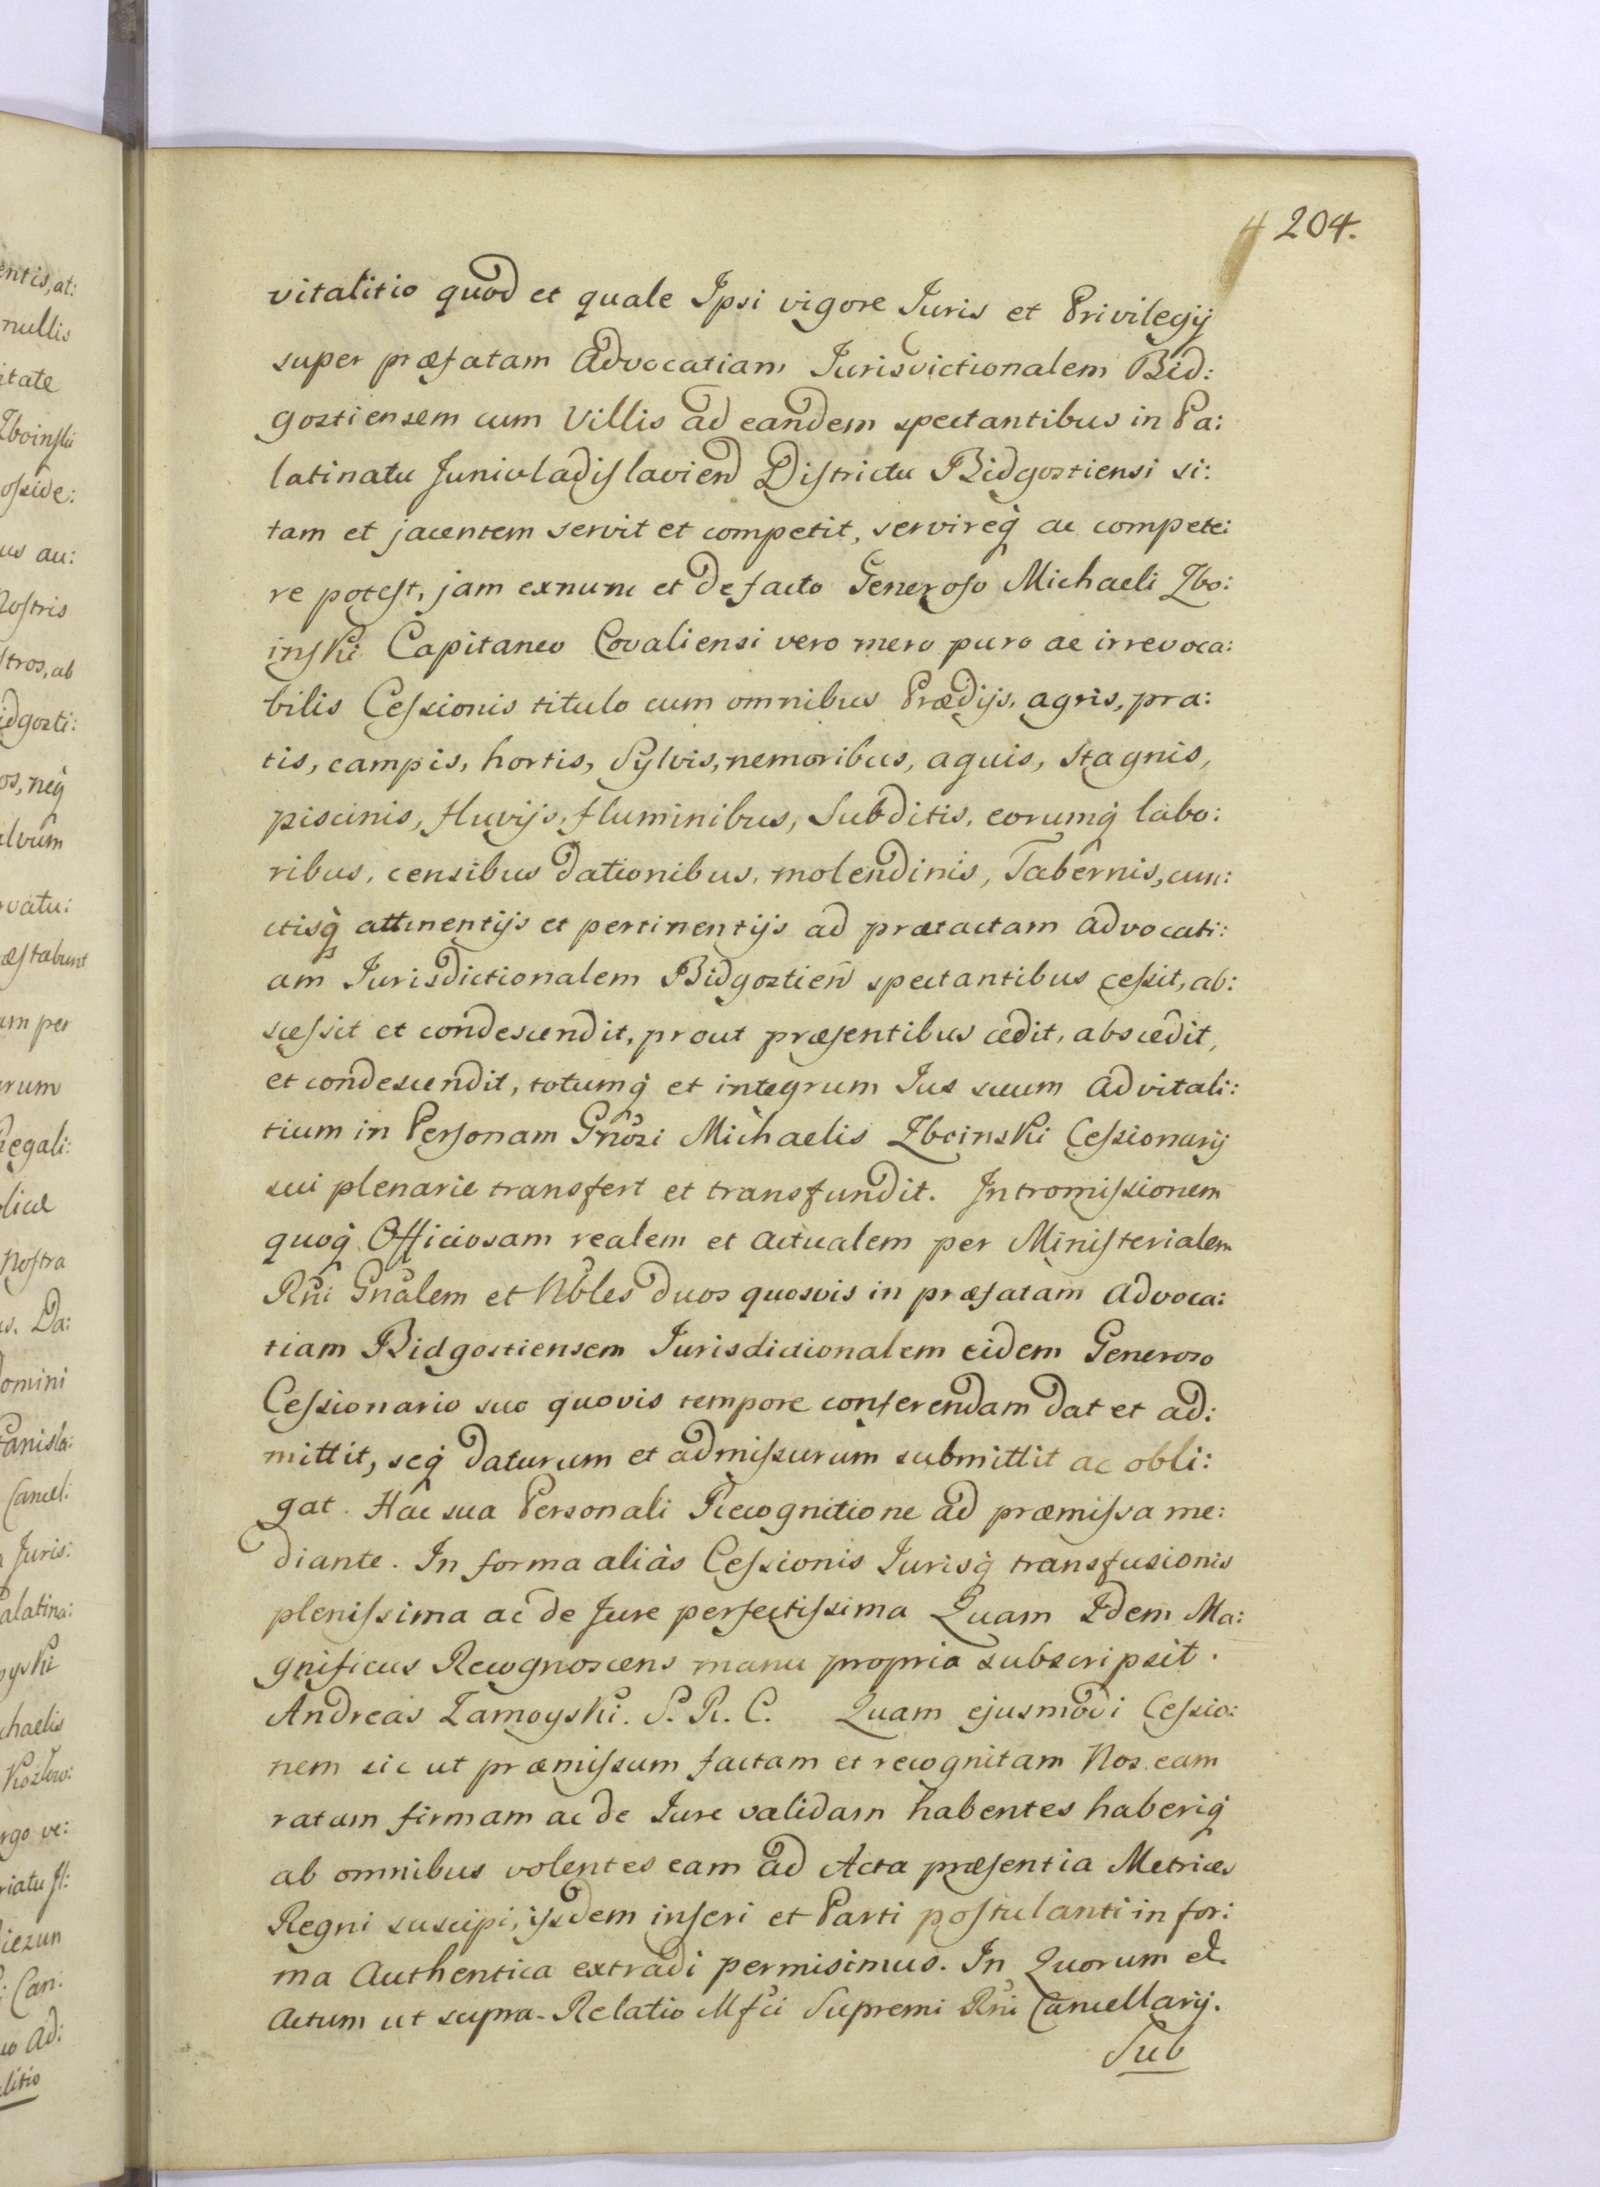 204.
vitalitio quod et quale Ipsi vigore Iuris et Privilegij
super præfatam Advocatiam Jurisdictionalem Bid:
gostiensem cum Villis ad eandem spectantibus in Pa:
latinatu Junivladislavien Districtu Bidgostiensi si:
tam et jacentem servit et competit, servireq̃ ac compete:
re potest, jam exnunc et de facto Generoso Michaeli Zbo:
inski Capitaneo Covaliensi vero mero puro ac irrevoca:
bilis Cessionis titulo cum omnibus Prædijs, agris, pra:
tis, campis, hortis, Sylvis, nemoribus, aquis, stagnis,
piscinis, fluvijs, fluminibus, Subditis, eorumq̃ labo:
ribus, censibus dationibus, molendinis, Tabernis, cun:
ctisq̃ attinentijs et pertinentijs ad prætactam Advocati:
am Jurisdictionalem Bidgostien̄ spectantibus cessit, ab:
scessit et condescendit, prout præsentibus cedit, abscedit,
et condescendit, totumq̃ et integrum Jus suum Advitali:
tium in Personam Gnõsi Michaelis Zboinski Cessionarij
sui plenarie transfert et transfundit. Intromissionem
quoq̃ Officiosam realem et actualem per Ministerialem
Rñi Gñalem et Nbles duos quosvis in præfatam Advoca:
tiam Bidgostiensem Jurisdictionalem eidem Generoso
Cessionario suo quovis tempore conferendam dat et ad:
mittit, seq̃ daturum et admissurum submittit ac obli:
gat. Hac sua Personali Recognitione ad præmissa me:
diante. In forma aliàs Cessionis Jurisq̃ transfusionis
plenissima ac de Jure perfectissima Quam Idem Ma:
gnificus Recognoscens manu propria subscripsit.
Andreas Zamoyski. S. R. C. Quam ejusmodi Cessio:
nem sic ut præmissum factam et recognitam Nos eam
ratam firmam ac de Jure validam habentes haberiq̃
ab omnibus volentes eam ad Acta præsentia Metrices
Regni suscipi, ijsdem inseri et Parti postulanti in for:
ma Authentica extradi permisimus. In Quorum et.
Actum ut supra. Relatio Mfci Supremi Rñi Cancellarij.
Sub